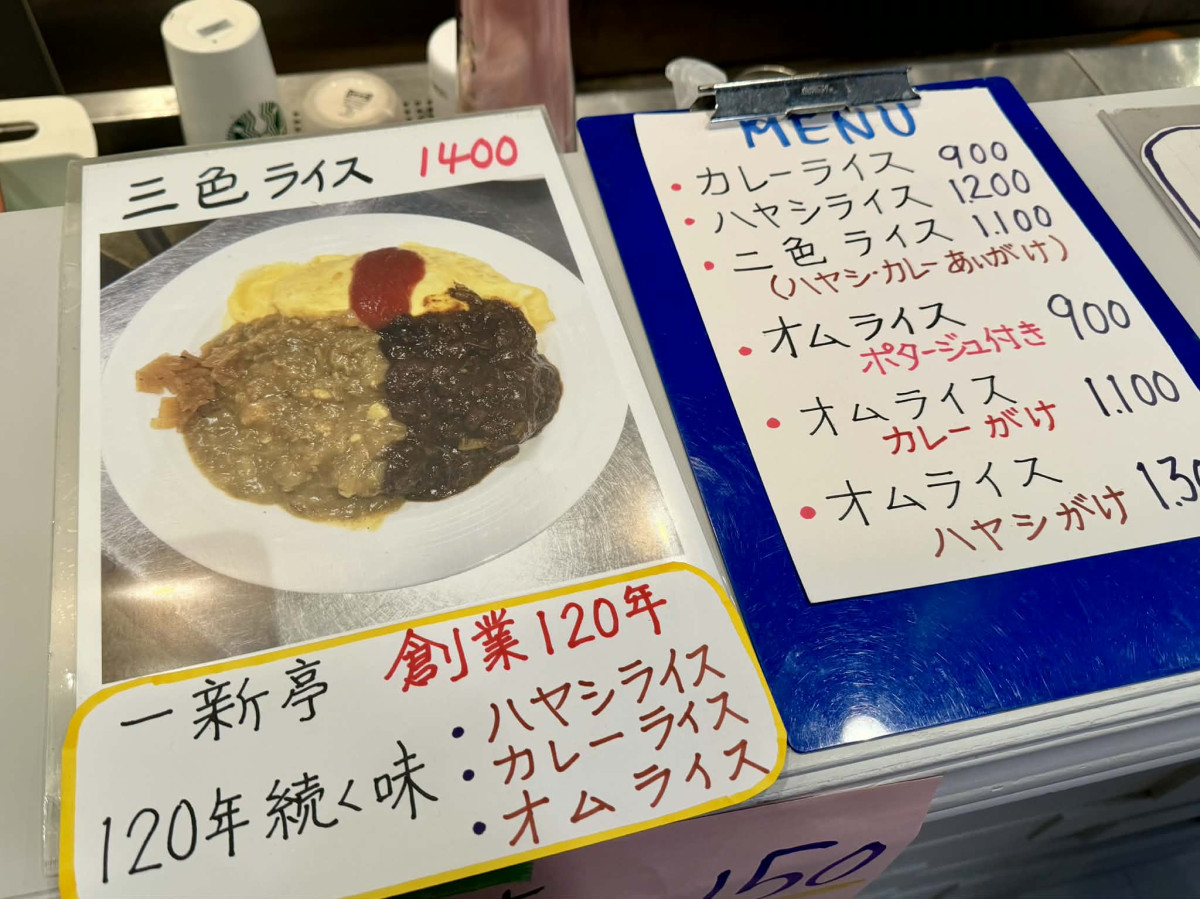 三色ライス 1400
一新亭 創業120年
120年続く味
・ハヤシライス
・カレーライス
・オムライス
MENU
・カレーライス 900
・ハヤシライス 1.200
・二色ライス 1.100
(ハヤシ・カレーあいがけ)
・オムライス 900
ポタージュ付き
・オムライス 1.100
カレーがけ
・オムライス
ハヤシがけ
150